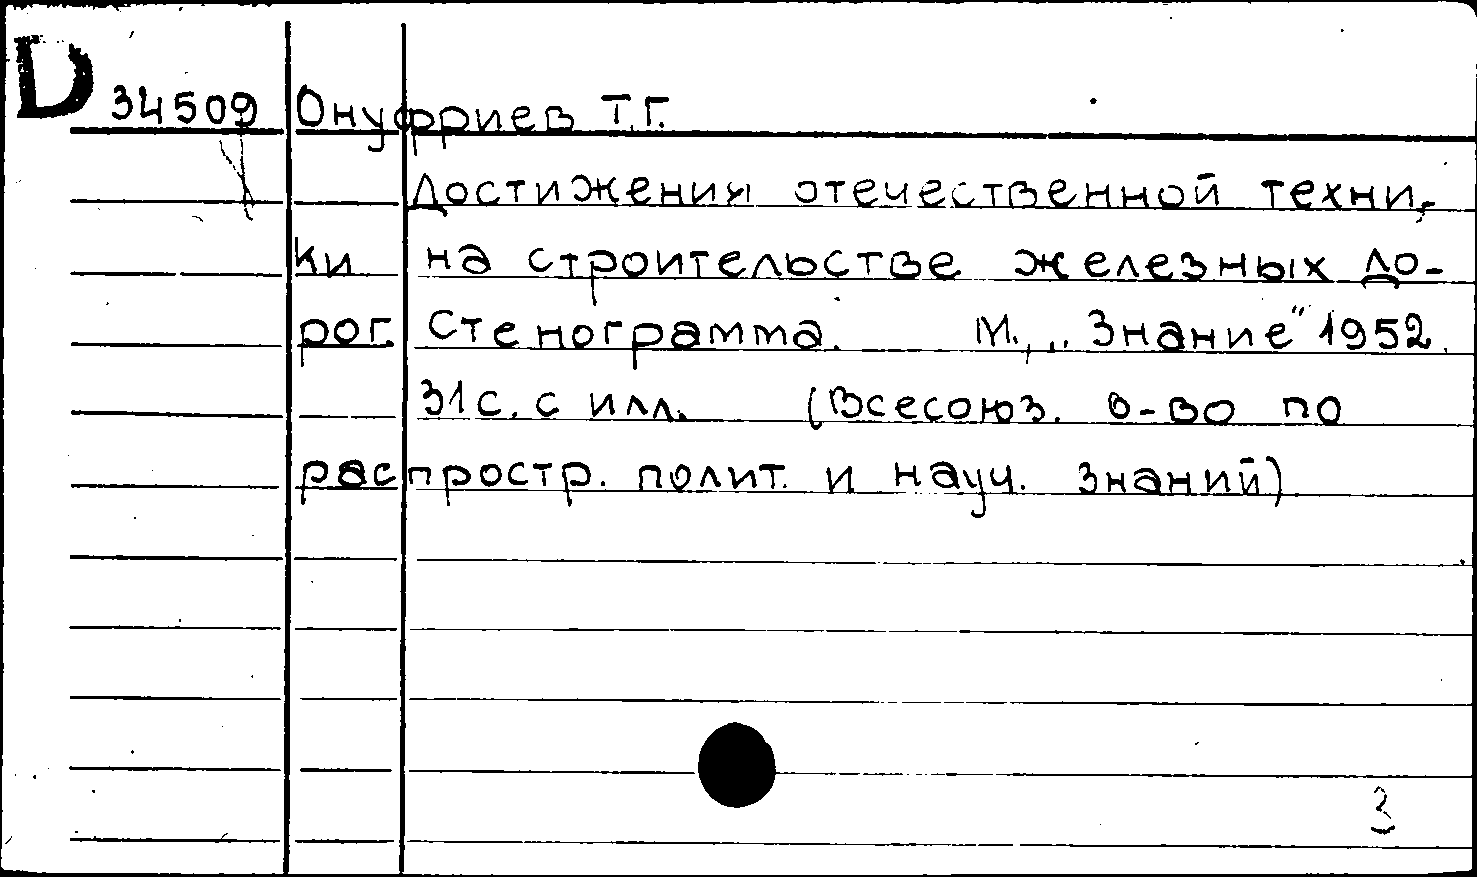 D 34509 Онуфриев Т.Г.
Достижения отечественной техни-
ки на строительстве железных до-
рог. Стенограмма. М., „Знание" 1952.
31с. с илл. (Всесоюз. о-во по
распростр. полит. и науч. знаний)
3